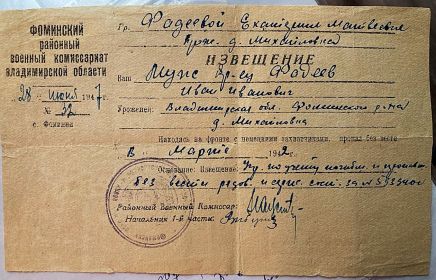 ФОМИНСКИЙ
районный
военный комиссариат
владимирской области
„28“ июня 1947 г.
№ 32
с. Фоминки
Гр. Фадеевой Екатерине Матвеевне
Прож. д. Михайловка
ИЗВЕЩЕНИЕ
Ваш Муж кр-ец Фадеев
Иван Иванович
Уроженец: Владимирская обл. Фоминского р-на
д. Михайловка
Находясь на фронте с немецкими захватчиками, пропал без вести
В Марте 1942 г.
Основание: Извещение: Упр. по учету погибш. и пропавш.
без вести рядов. и серж. сост. за №
Районный Военный Комиссар:
Начальник 1-й части: